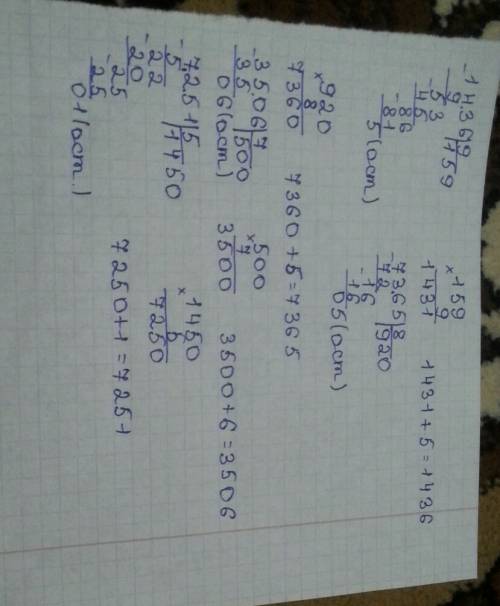 -1436|9
9 |159
-53
45
-86
81
5(ост)
×159
9
1431
1431+5=1436
-7365|8
72 |920
-16
16
05(ост)
×920
8
7360
7360+5=7365
-3506|7
35 |500
06(ост)
×500
7
3500
3500+6=3506
-7251|5
5 |1450
-22
20
-25
25
01(ост.)
×1450
5
7250
7250+1=7251